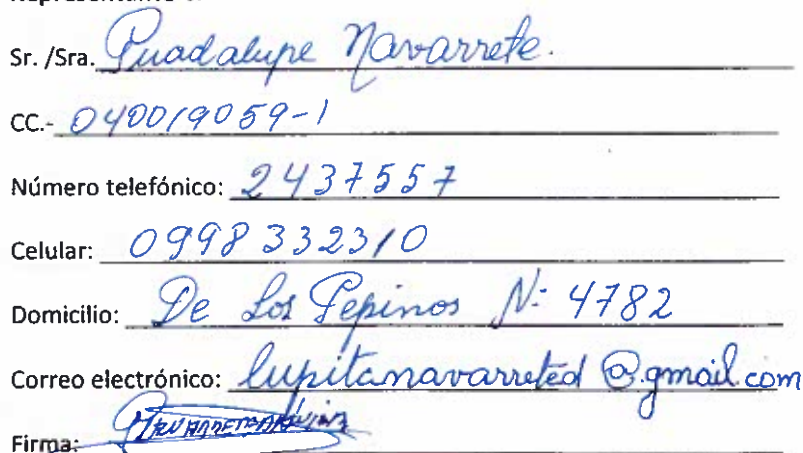 Sr. /Sra. Guadalupe Navarrete.
CC.- 040019059-1
Número telefónico: 2437557
Celular: 0998332310
Domicilio: De Los Pepinos N: 4782
Correo electrónico: lupitanavarreted@gmail.com
Firma: